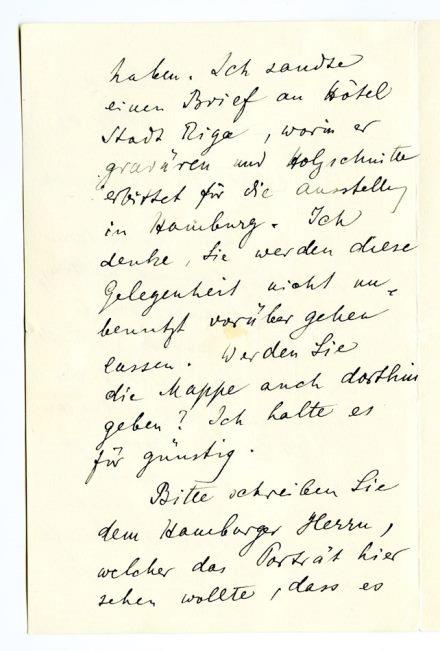 haben. Ich sandte
einen Brief an Hôtel
Stadt Riga, worin er
gravüren und Holzschnitte
erbittet für die Ausstellg
in Hamburg. Ich
denke, Sie werden diese
Gelegenheit nicht un-
benutzt vorüber gehen
lassen. Werden Sie
die Mappe auch dorthin
geben? Ich halte es
für günstig.
Bitte schreiben Sie
dem Hamburger Herrn,
welcher das Porträt hier
sehen wollte, dass es